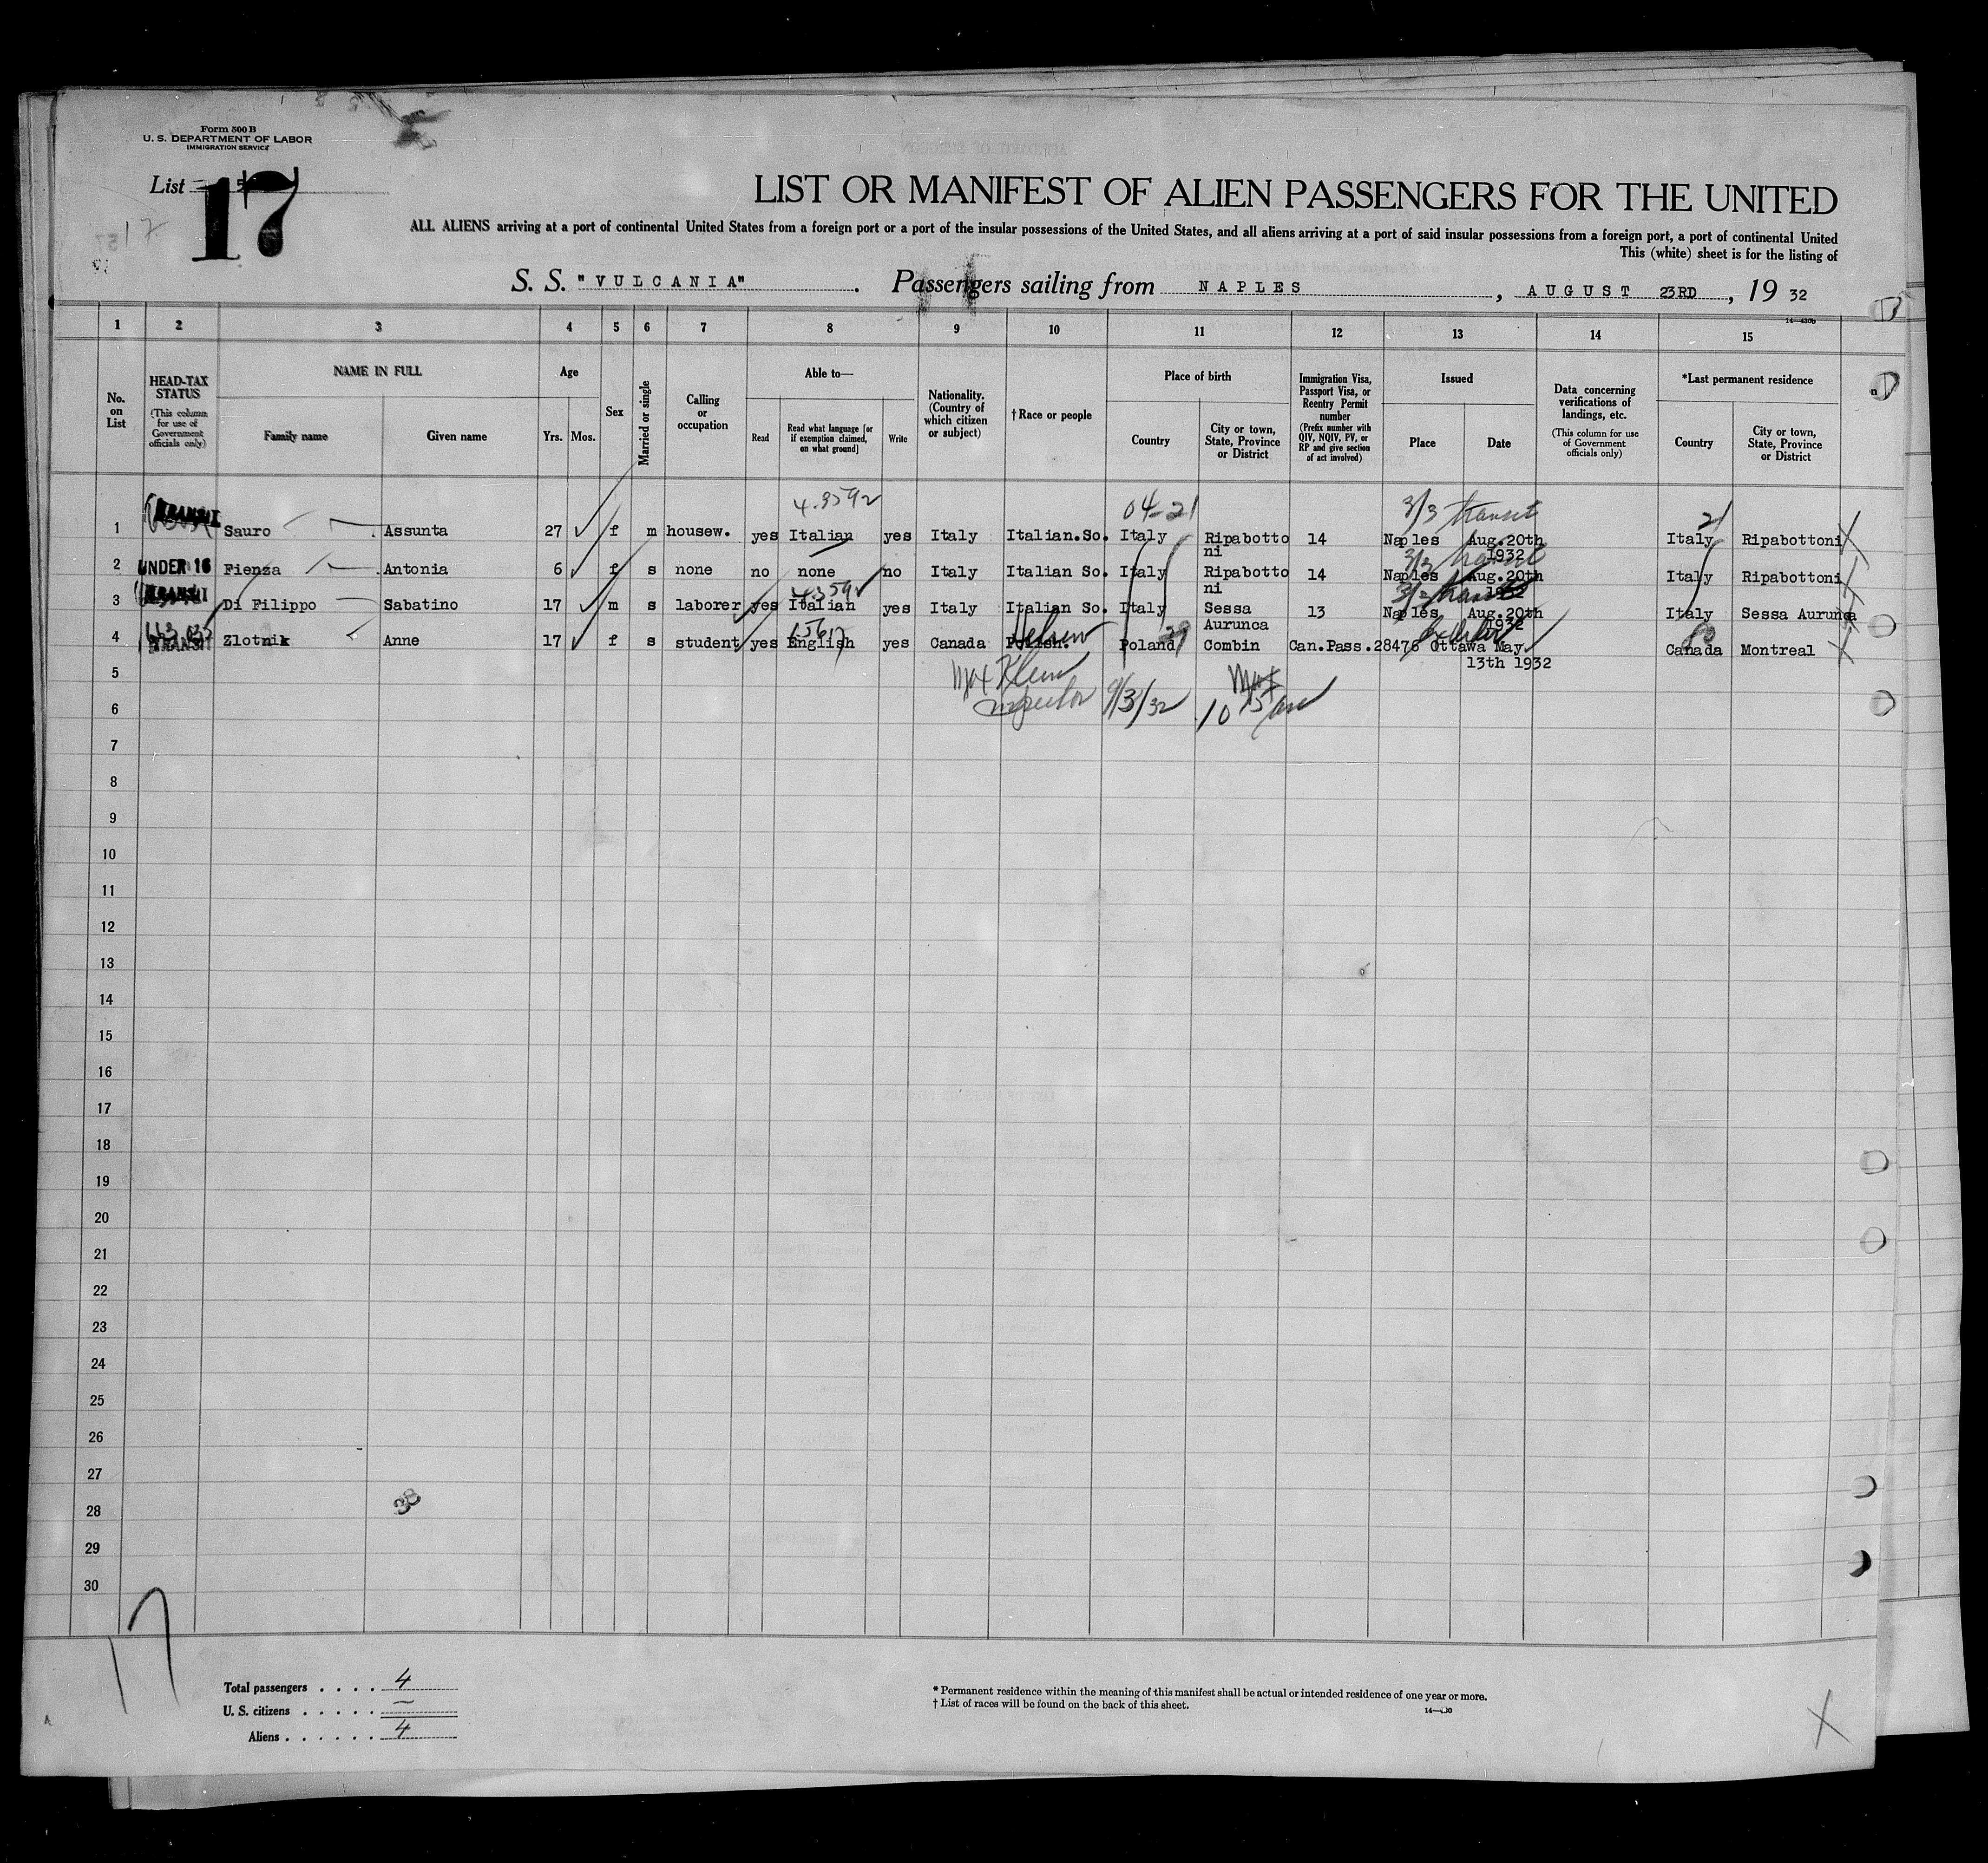 Form 500 B
U. S. DEPARTMENT OF LABOR
IMMIGRATION SERVICE
List 17
17
LIST OR MANIFEST OF ALIEN PASSENGERS FOR THE UNITED
ALL ALIENS arriving at a port of continental United States from a foreign port or a port of the insular possessions of the United States, and all aliens arriving at a port of said insular possessions from a foreign port, a port of continental United
This (white) sheet is for the listing of
S. S. "VULCANIA". Passengers sailing from NAPLES, AUGUST 23RD, 19 32
14—430b
1 2 3 4 5 6 7 8 9 10 11 12 13 14 15
No. on List
HEAD-TAX STATUS (This column for use of Government officials only)
NAME IN FULL
Family name
Given name
Age
Yrs. Mos.
Sex
Married or single
Calling or occupation
Able to—
Read
Read what language [or if exemption claimed, on what ground]
Write
Nationality. (Country of which citizen or subject)
†Race or people
Place of birth
Country
City or town, State, Province or District
Immigration Visa, Passport Visa, or Reentry Permit number (Prefix number with QIV, NQIV, PV, or RP and give section of act involved)
Issued
Place
Date
Data concerning verifications of landings, etc. (This column for use of Government officials only)
*Last permanent residence
Country
City or town, State, Province or District
4.3592 04-21 3/3 transit 21
1 TRANSIT Sauro Assunta 27 f m housew. yes Italian yes Italy Italian.So. Italy Ripabottoni 14 Naples Aug.20th 1932 Italy Ripabottoni
3/3 transit
2 UNDER 16 Fienza Antonia 6 f s none no none no Italy Italian So. Italy Ripabottoni 14 Naples Aug.20th 1932 Italy Ripabottoni
4.3592 3/3 transit
3 TRANSIT Di Filippo Sabatino 17 m s laborer yes Italian yes Italy Italian So. Italy Sessa Aurunca 13 Naples Aug.20th 1932 Italy Sessa Aurunca
Hebrew 29
4 TRANSIT Zlotnik Anne 17 f s student yes English yes Canada Polish. Poland Combin Can.Pass.28476 Ottawa May 13th 1932 Canada Montreal
5
Max Klein
Inspector 9/3/32
6
7
8
9
10
11
12
13
14
15
16
17
18
19
20
21
22
23
24
25
26
27
28
38
29
30
17
Total passengers . . . . 4
U. S. citizens . . . . . —
Aliens . . . . . . 4
* Permanent residence within the meaning of this manifest shall be actual or intended residence of one year or more.
† List of races will be found on the back of this sheet.